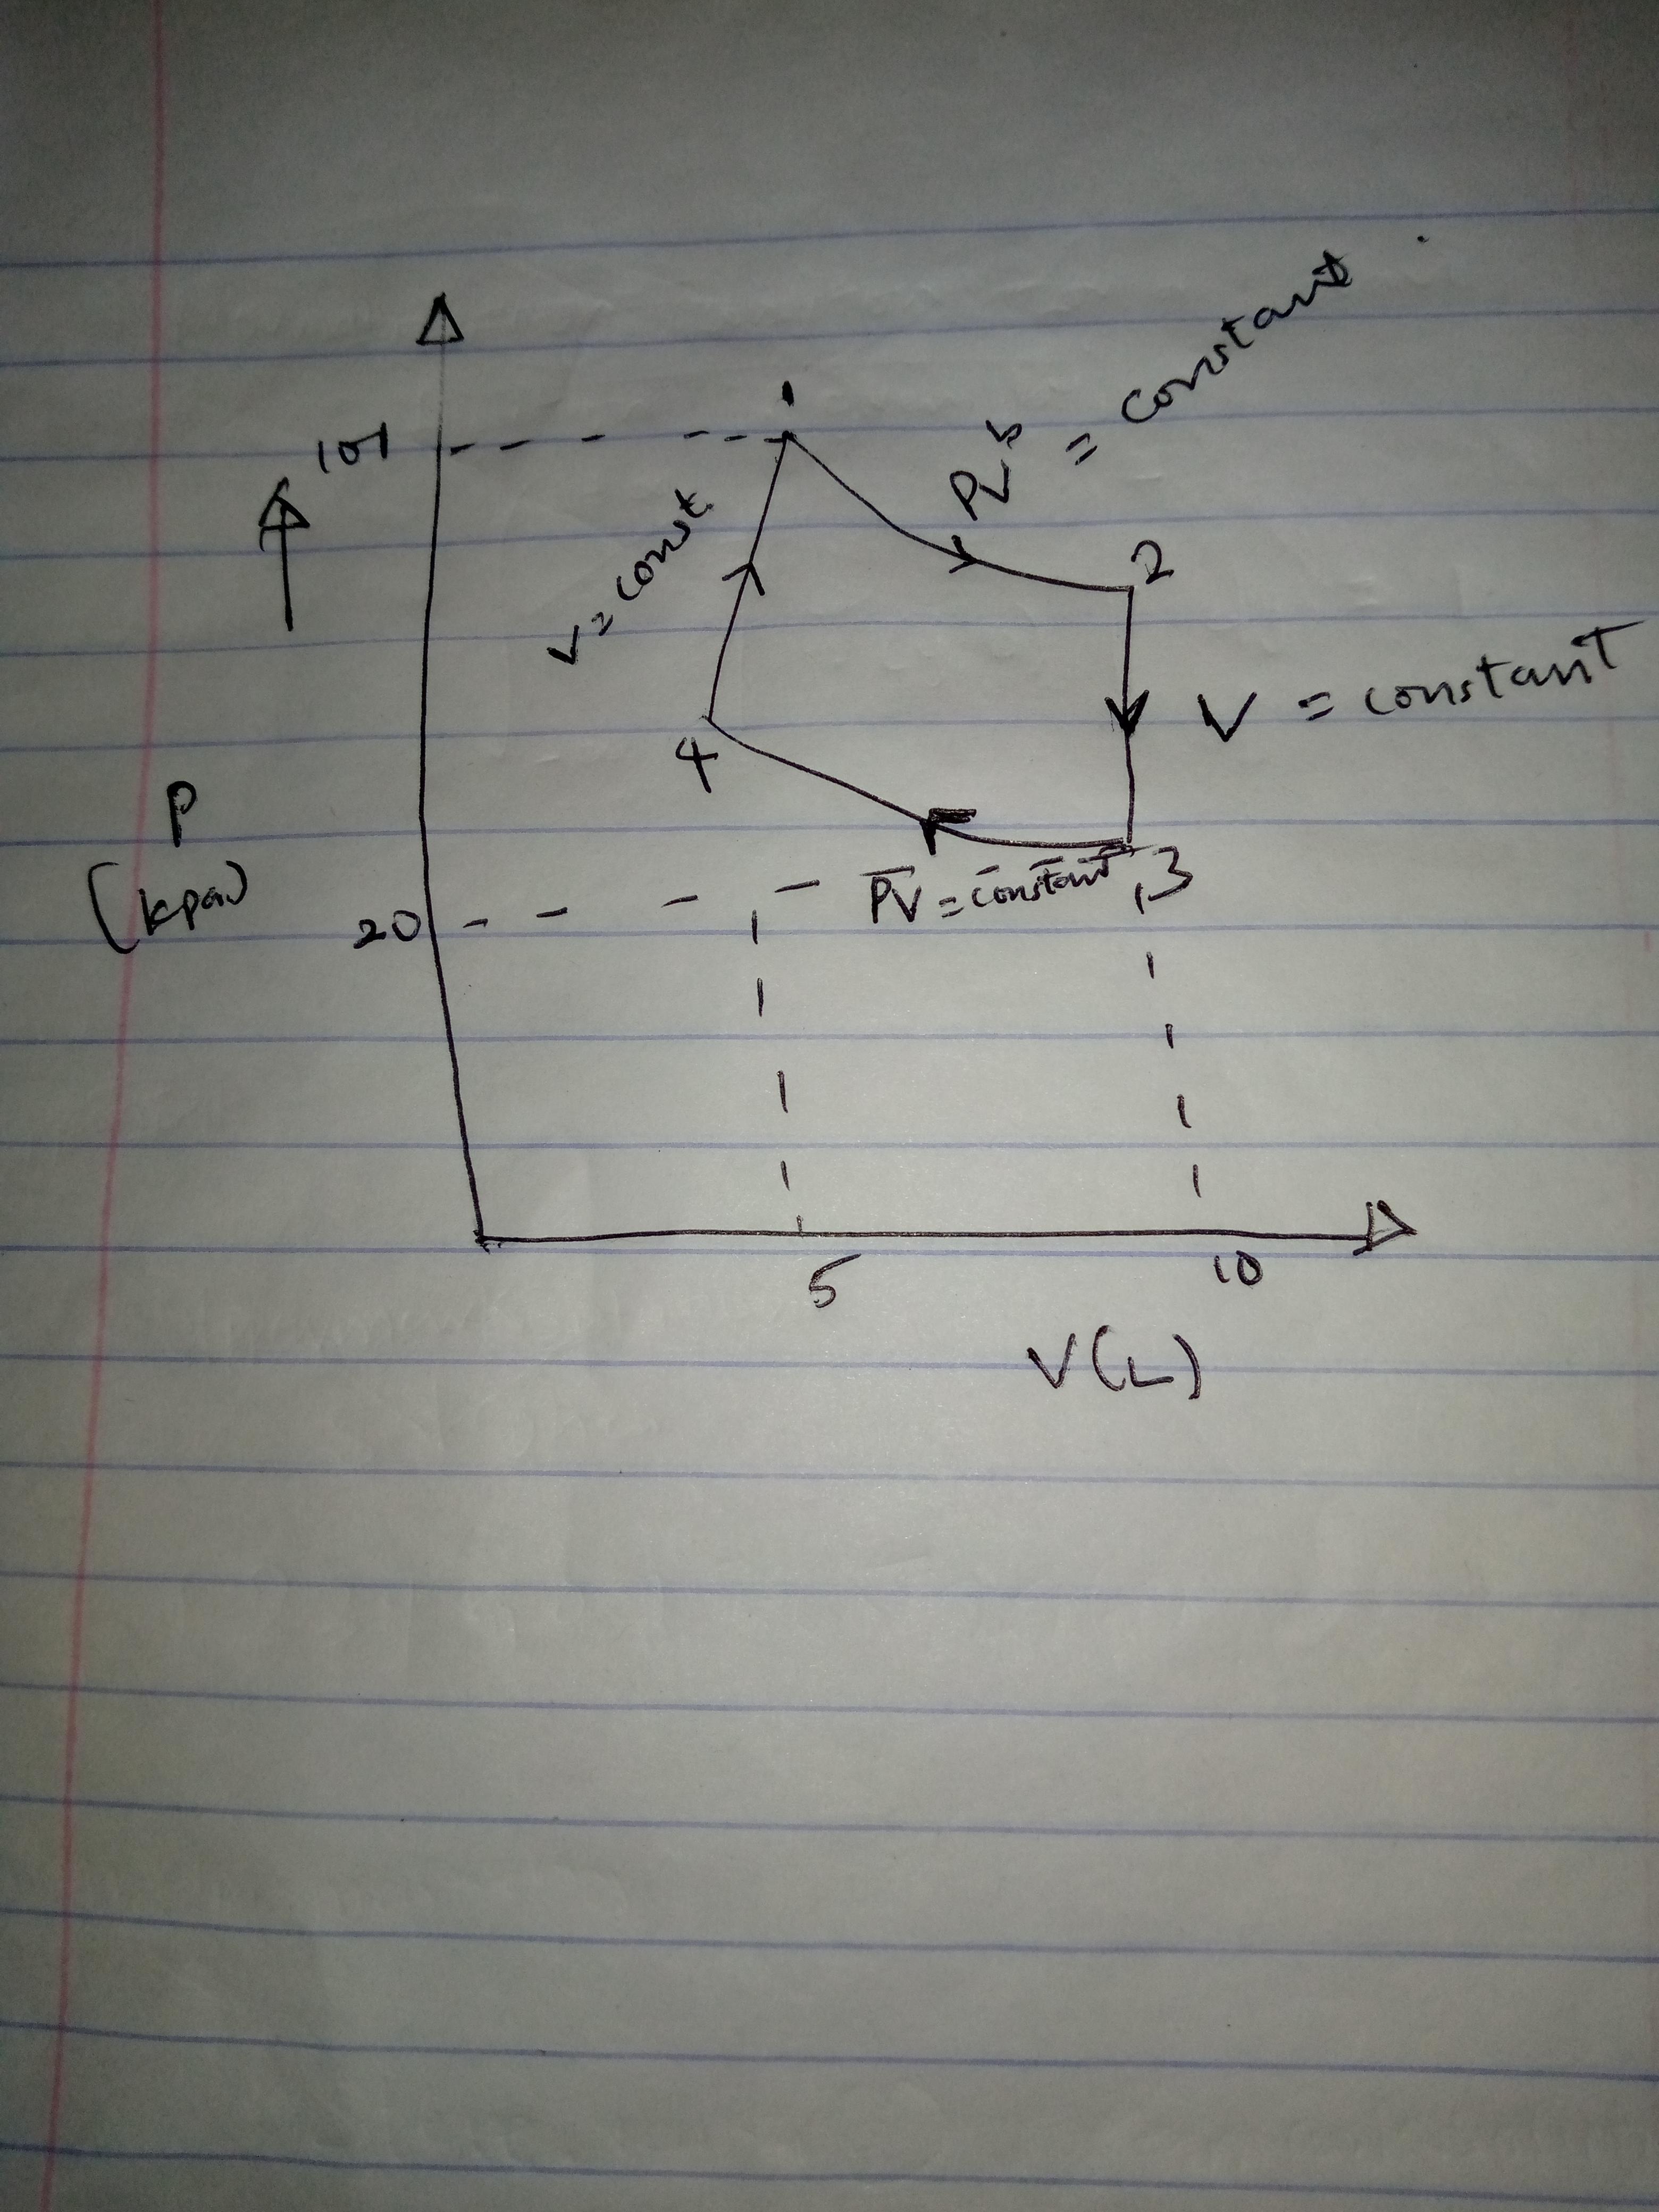 1
101
PV^b = constant
V = const
2
V = constant
4
P
(kpa)
20
PV = constant
3
5
10
V(L)